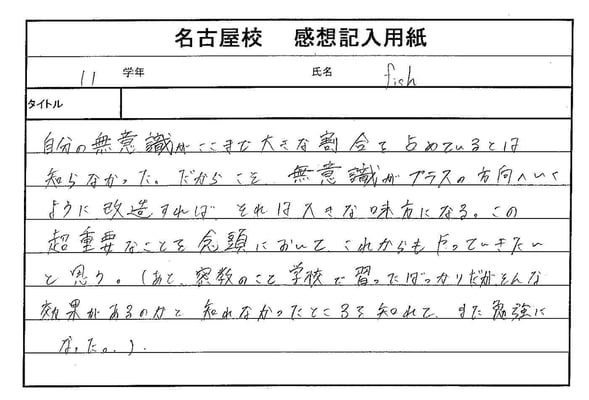 名古屋校 感想記入用紙
11 学年 氏名 fish
タイトル
自分の無意識がここまで大きな割合を占めているとは
知らなかった。だからこそ、無意識がプラスの方向へいく
ように改造すれば、それは大きな味方になる。この
超重要なことを念頭において、これからもやっていきたい
と思う。(あと、密教のこと学校で習ったばっかりだがそんな
効果があるのかと知れなかったところを知れて、また勉強に
なった。).